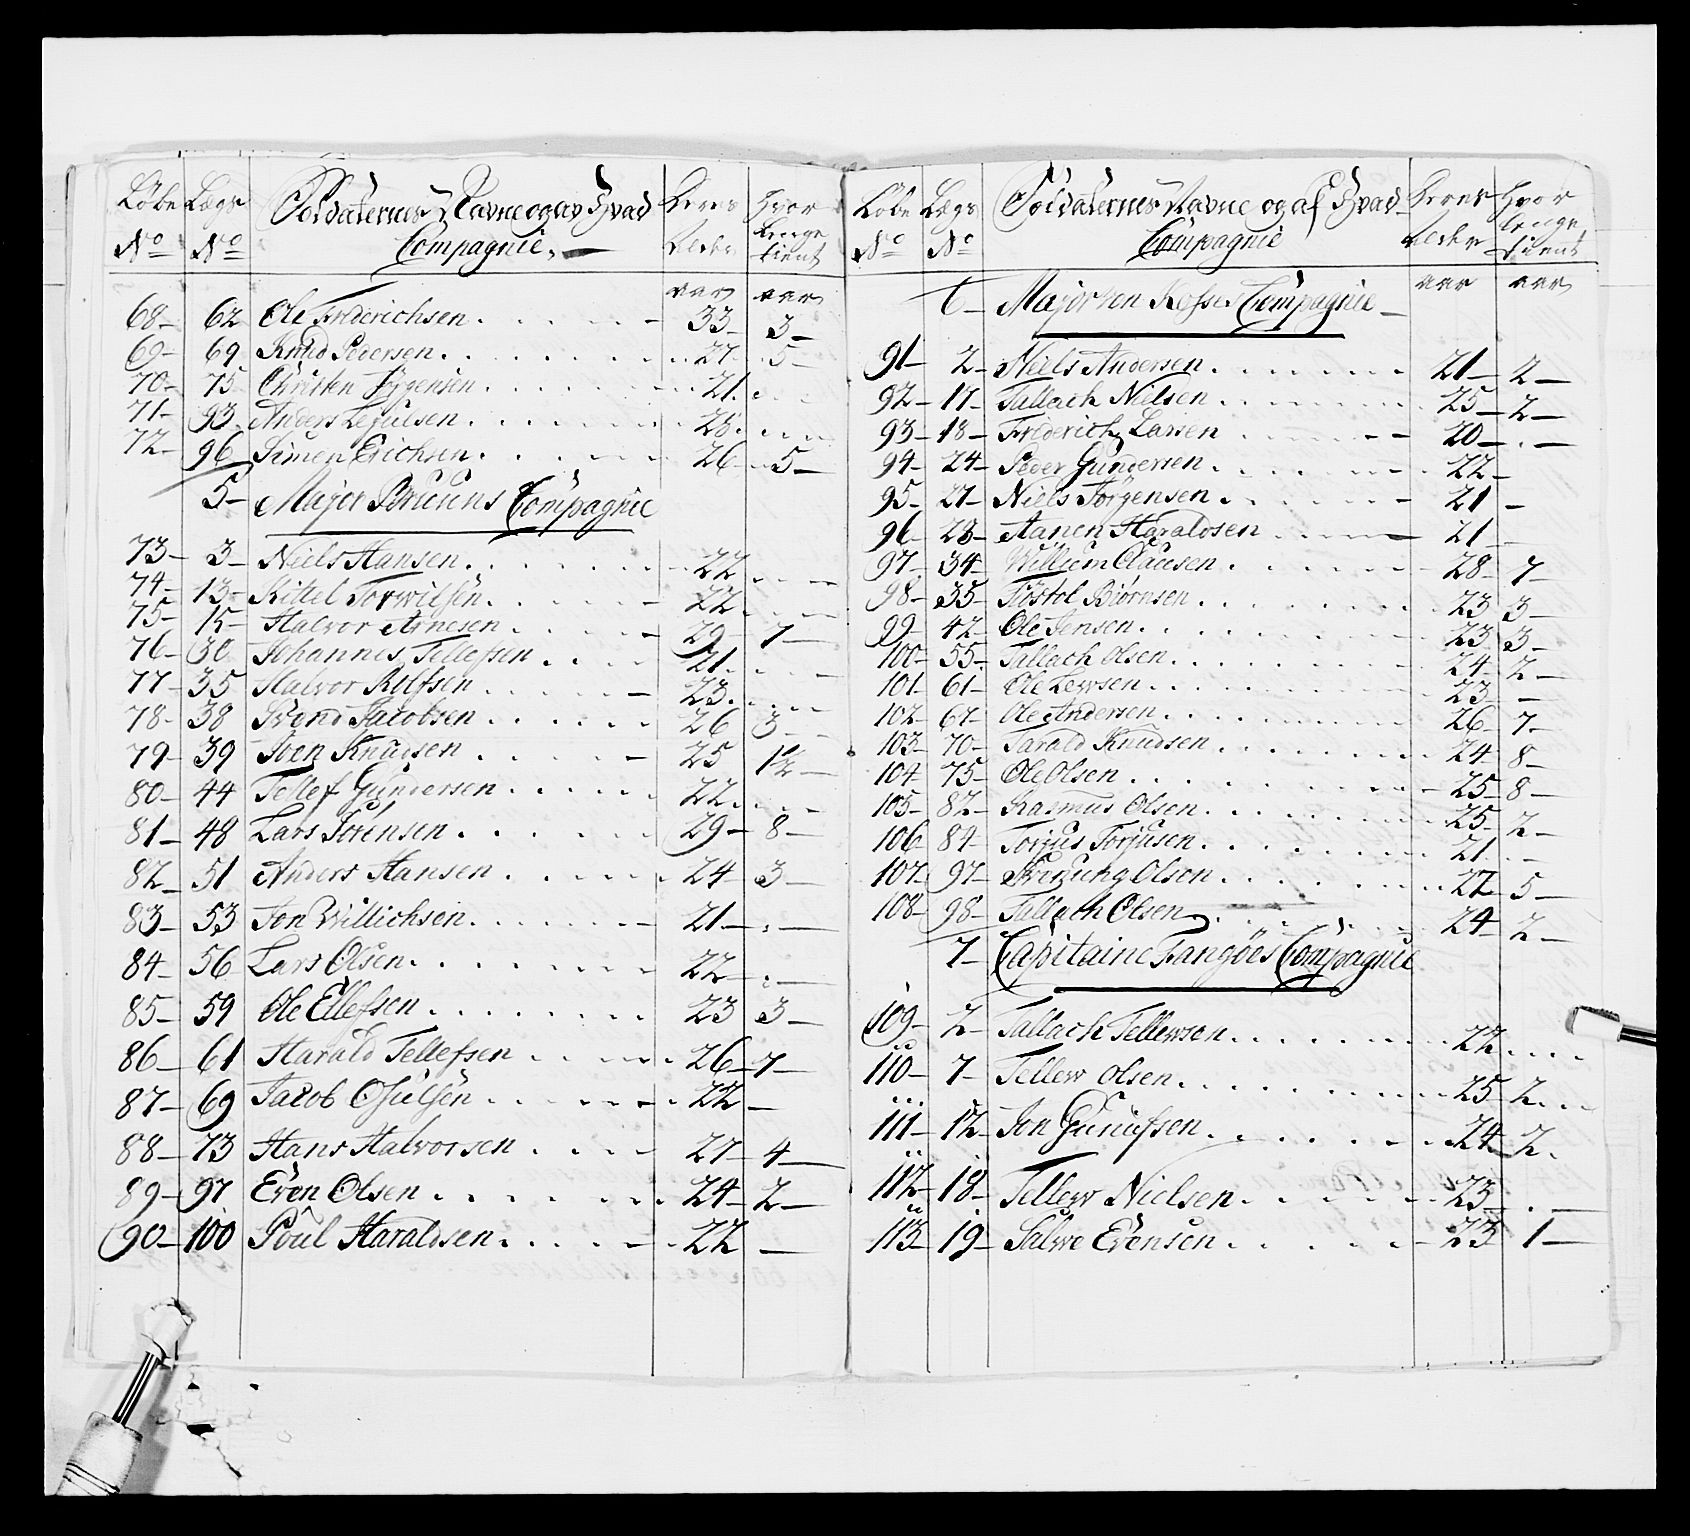 Löbe Lægs Soldaternes Navne og av Hvad Deres Hvor
No No Compagnie. Alder længe tient
aar aar
68 62 Ole Friderichsen 33 3
69 69 Knud Pedersen 27 5
70 75 Christen Jörgensen 21
71 93 Anders Lejulsen 23
72 96 Simen Erichsen 26 5
5 Major Bruuns Compagnie
73 3 Niels Hansen 22
74 13 Kittel Torwilsen 22
75 15 Halvor Arnesen 29 7
76 30 Johannes Tellefsen 21
77 35 Halvor Rolfsen 23
78 38 Svend Jacobsen 26 3
79 39 Joen Knudsen 25 1½
80 44 Tellef Gundersen 22
81 48 Lars Sörensen 29 8
82 51 Anders Hansen 24 3
83 53 Jon Willichsen 21
84 56 Lars Olsen 22
85 59 Ole Ellefsen 23 3
86 61 Harald Tellefsen 26 7
87 69 Jacob Osulsen 22
88 73 Hans Halvorsen 27 4
89 97 Even Olsen 24 2
90 100 Poul Haraldsen 22
Löbe Lægs Soldaternes Navne og af Hvad Deres Hvor
No No Compagnie Alder længe tient
6 Major von Compagnie aar aar
91 2 Niels Andersen 21 2
92 17 Tallach Nielsen 25 2
93 18 Friderich Larsen 20
94 24 Peder Gundersen 22
95 27 Niels Jörgensen 21
96 28 Aanen Haraldsen 21
97 34 Willum Clausen 28 7
98 35 Töstol Biörnsen 23 3
99 42 Ole Jensen 23 3
100 55 Tallach Olsen 24 2
101 61 Ole Lewsen 23
102 67 Ole Andersen 26 7
103 70 Tarald Knudsen 24 8
104 75 Ole Olsen 25 8
105 82 Rasmus Olsen 25 2
106 84 Torjus Torjusen 21
107 97 Olsen 27 5
108 98 Tallach Olsen 24 2
7 Capitaine Fangöes Compagnie
109 2 Tallach Tellewsen 22
110 7 Tellew Olsen 25 2
111 12 Jon Gunufsen 24 2
112 18 Tellew Nielsen 23
113 19 Salwe Evensen 23 1